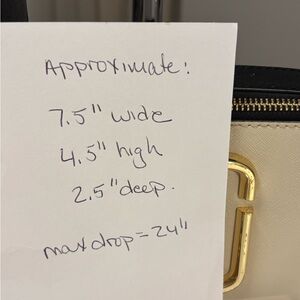 Approximate:
7.5" wide
4.5" high
2.5" deep.
max drop = 24"